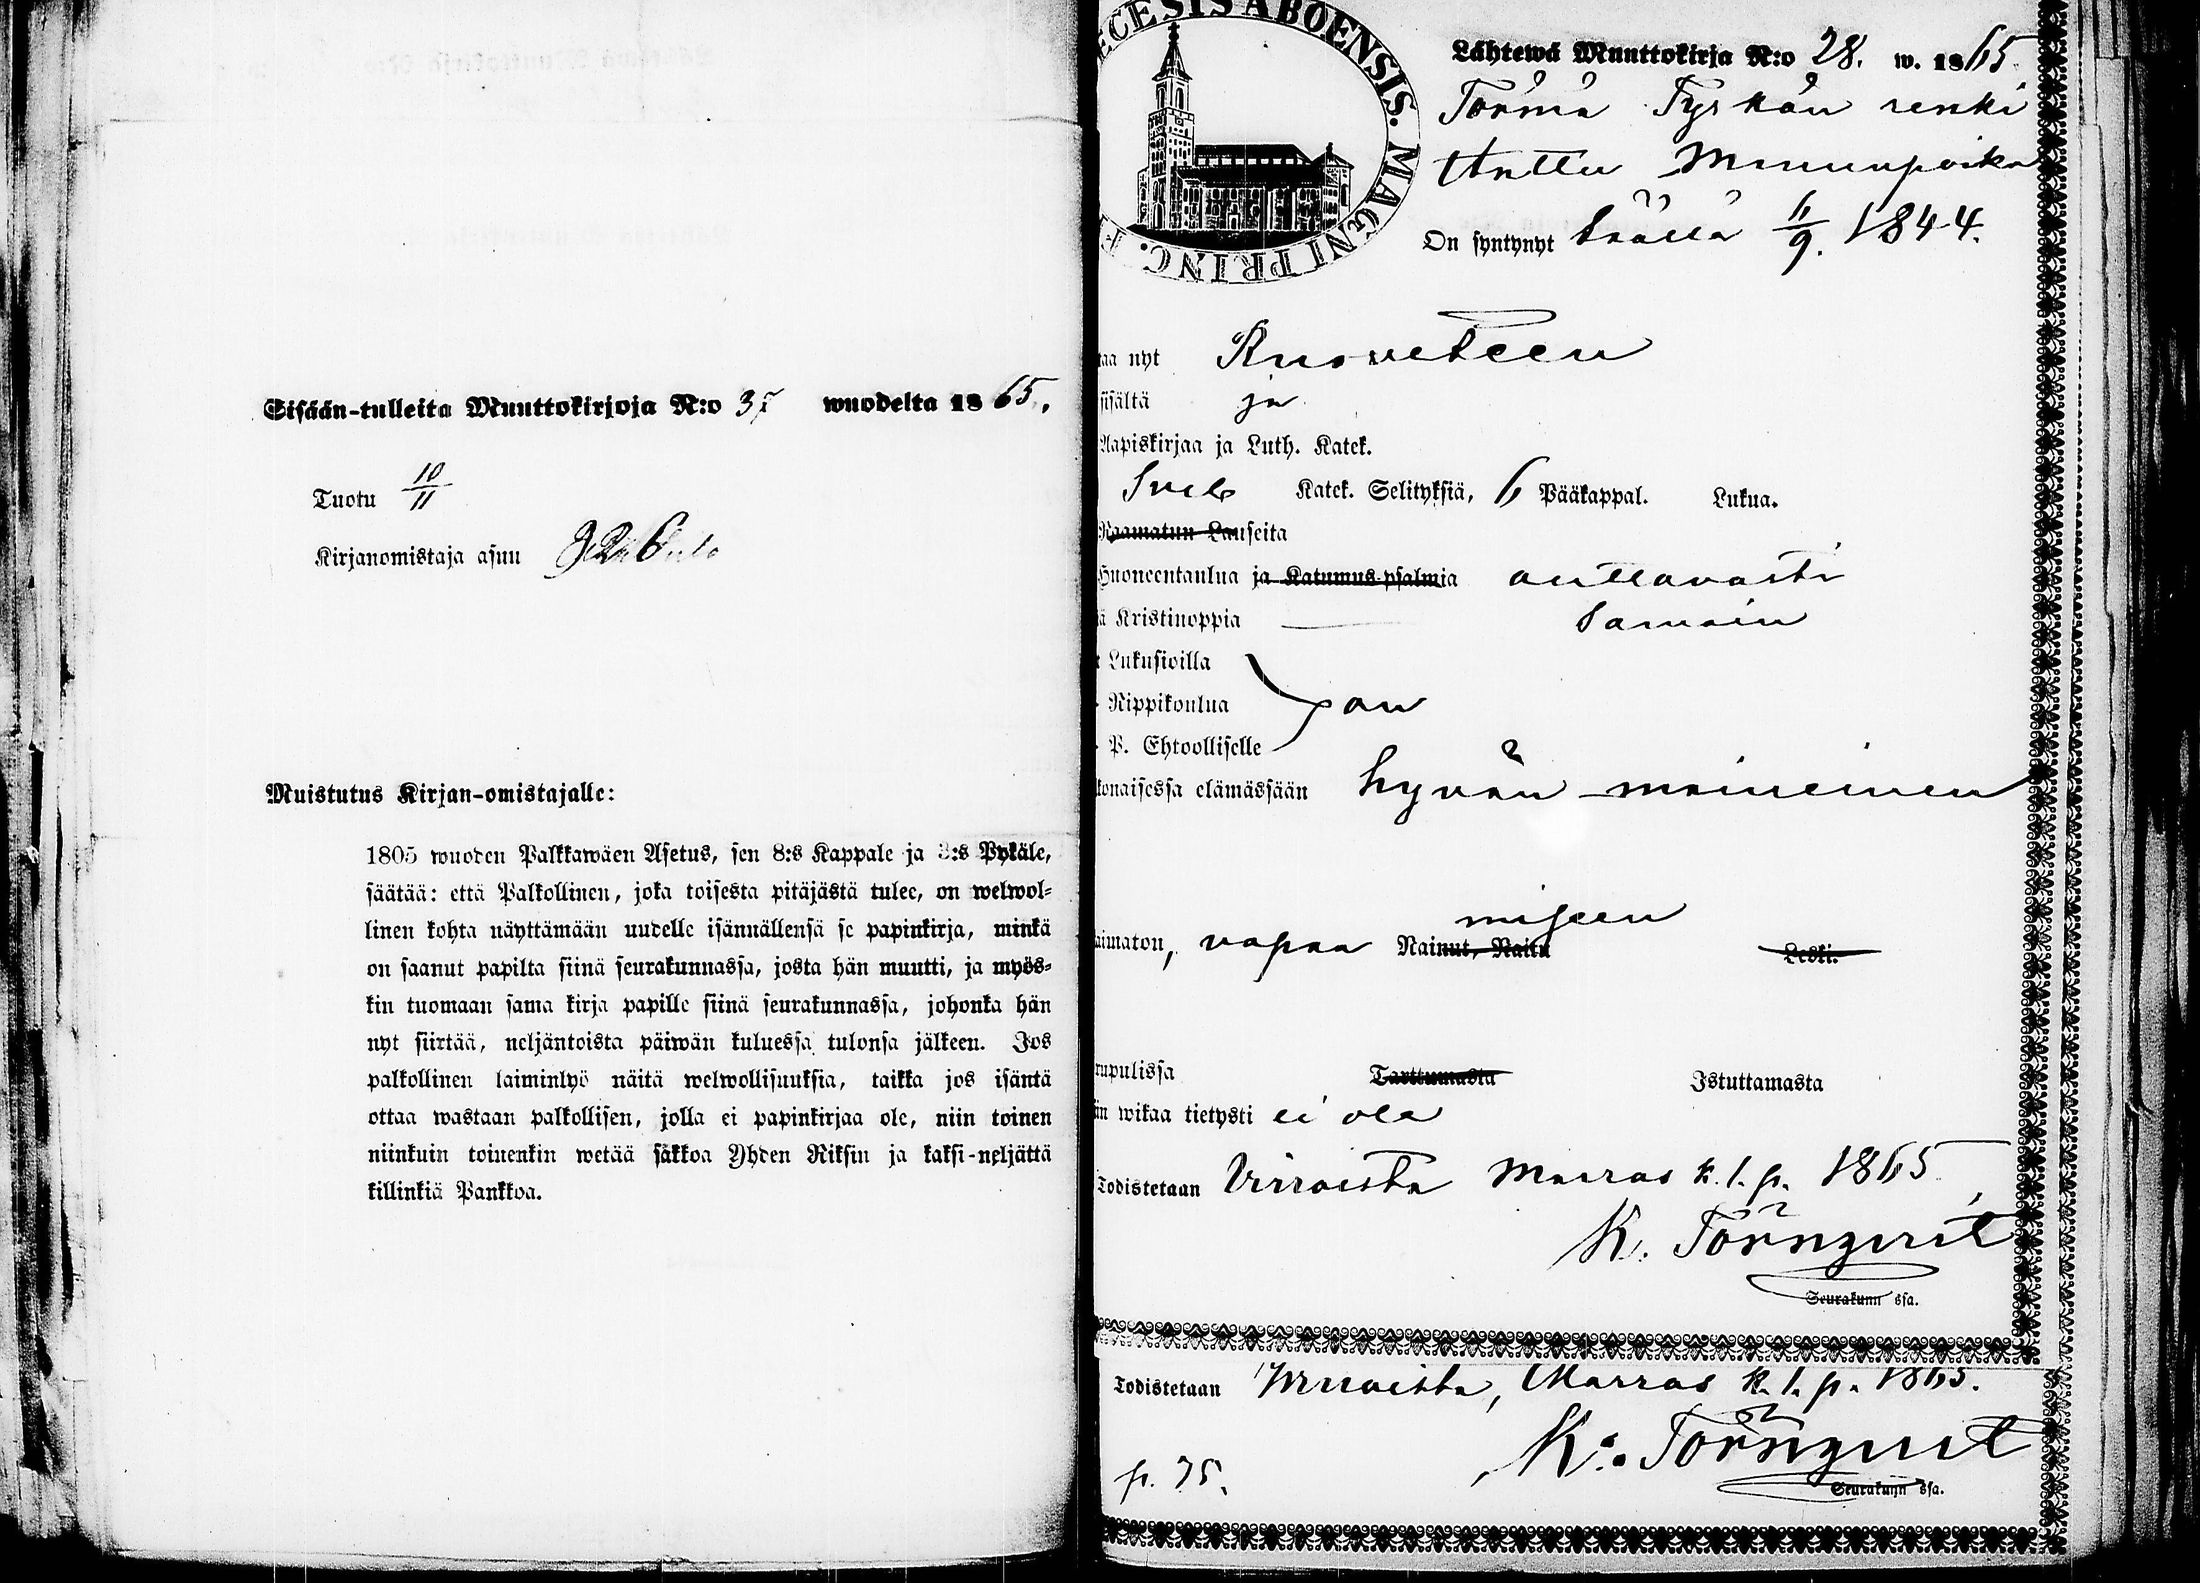 Sisään-tulleita Muuttokirjoja N:o 37 wuodelta 1865.
Tuotu 10/11
Kirjanomistaja asuu
Muistutus Kirjan-omistajalle:
1805 wuoden Palkkawäen Asetus, sen 8:s Kappale ja 3:s Pykäle,
säätää: että Palkollinen, joka toisesta pitäjästä tulee, on welwol-
linen kohta näyttämään uudelle isännällensä se papinkirja, minkä
on saanut papilta siinä seurakunnassa, josta hän muutti, ja myös-
kin tuomaan sama kirja papille siinä seurakunnassa, johonka hän
nyt siirtää, neljäntoista päiwän kuluessa tulonsa jälkeen. Jos
palkollinen laiminlyö näitä welwollisuuksia, taikka jos isäntä
ottaa wastaan palkollisen, jolla ei papinkirjaa ole, niin toinen
niinkuin toinenkin wetää sakkoa Yhden Riksin ja kaksi-neljättä
killinkiä Pankkoa.
ECESIS ABOENSIS. MAGNI PRINC. F
Lähtewä Muuttokirja N:o 28. w. 1865.
Törmä Tyrkön renki
Anttu Mununpoika
On syntynyt täällä 6/9. 1844.
taa nyt Ruoveteen
sisältä ja
Aapiskirjaa ja Luth. Katek.
Sveb Katek. Selityksiä, 6 Pääkappal. Lukua.
Raamatun Lauseita
Huoneentaulua ja Katumus-psalmia auttavasti
ä Kristinoppia samoin
Lukusioilla
Rippikoulua on
P. Ehtoolliselle
konaisessa elämässään hyvän maineinen
aimaton, vapaa Nainut, Naitu naimiseen Leski.
rupulissa Tarttumasta Istuttamasta
in wikaa tietysti ei ole
Todistetaan Virroista Marras k. 1. p. 1865
K. Törnqvist
Seurakunn ssa.
Todistetaan Virroista, Marras k. 1. p. 1865.
K. Törnqvist
p. 75.
Seurakunn ssa.